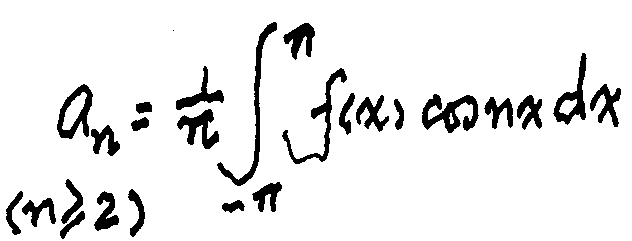 aₙ = 1/π ∫_{-π}^{π} f(x) cos nx dx
(n ≥ 2)